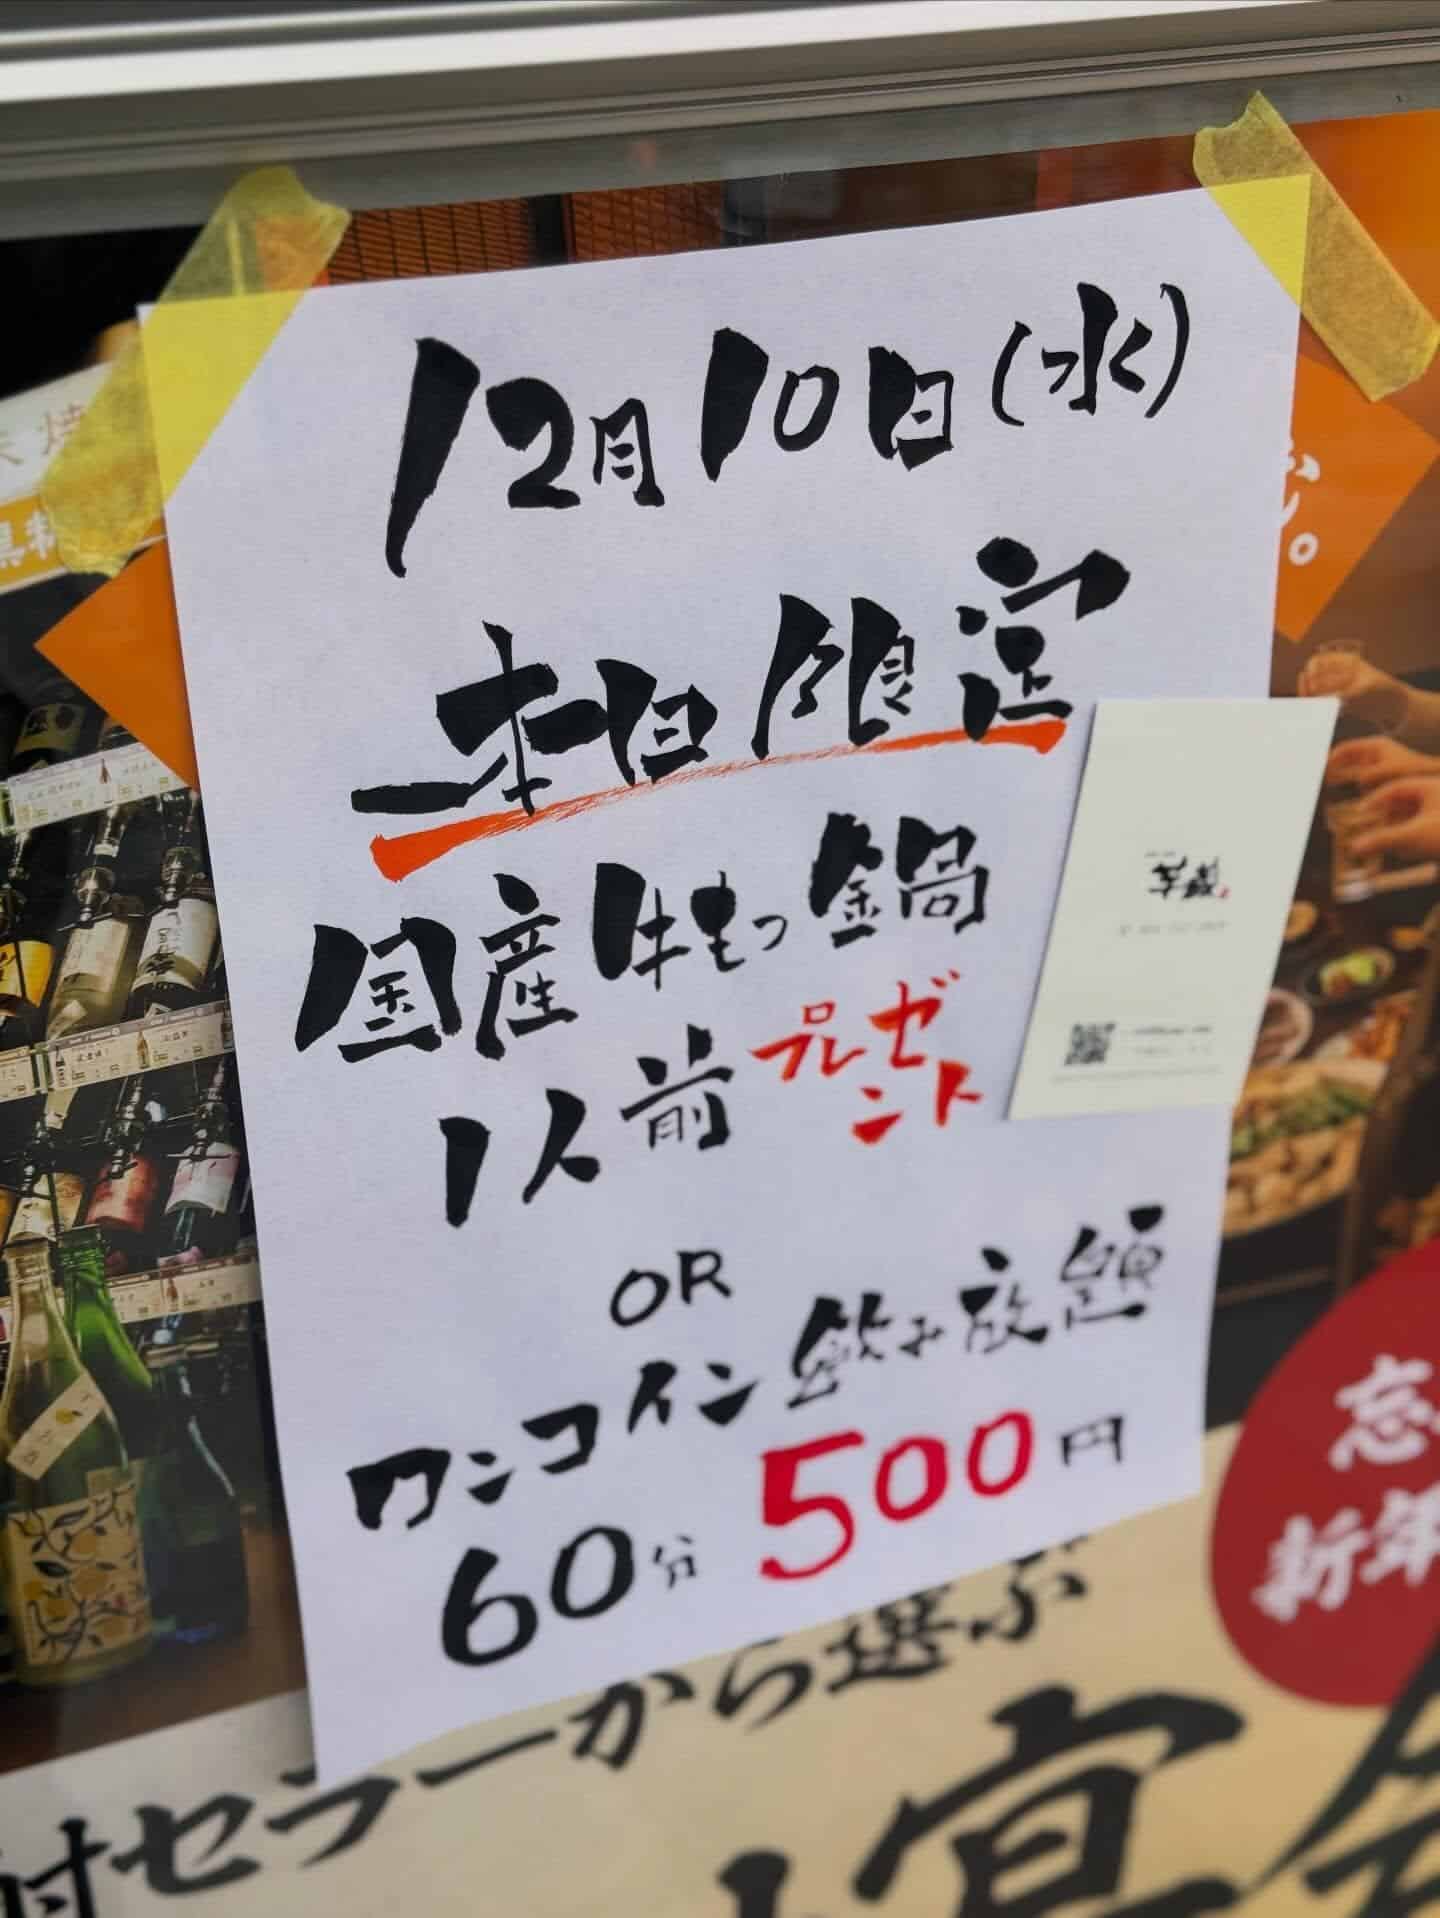 12月10日(水)
本日限定
国産牛もつ鍋
1人前プレゼント
OR
ワンコイン飲み放題
60分 500円
付セラーから選ぶ
宴
忘
新年